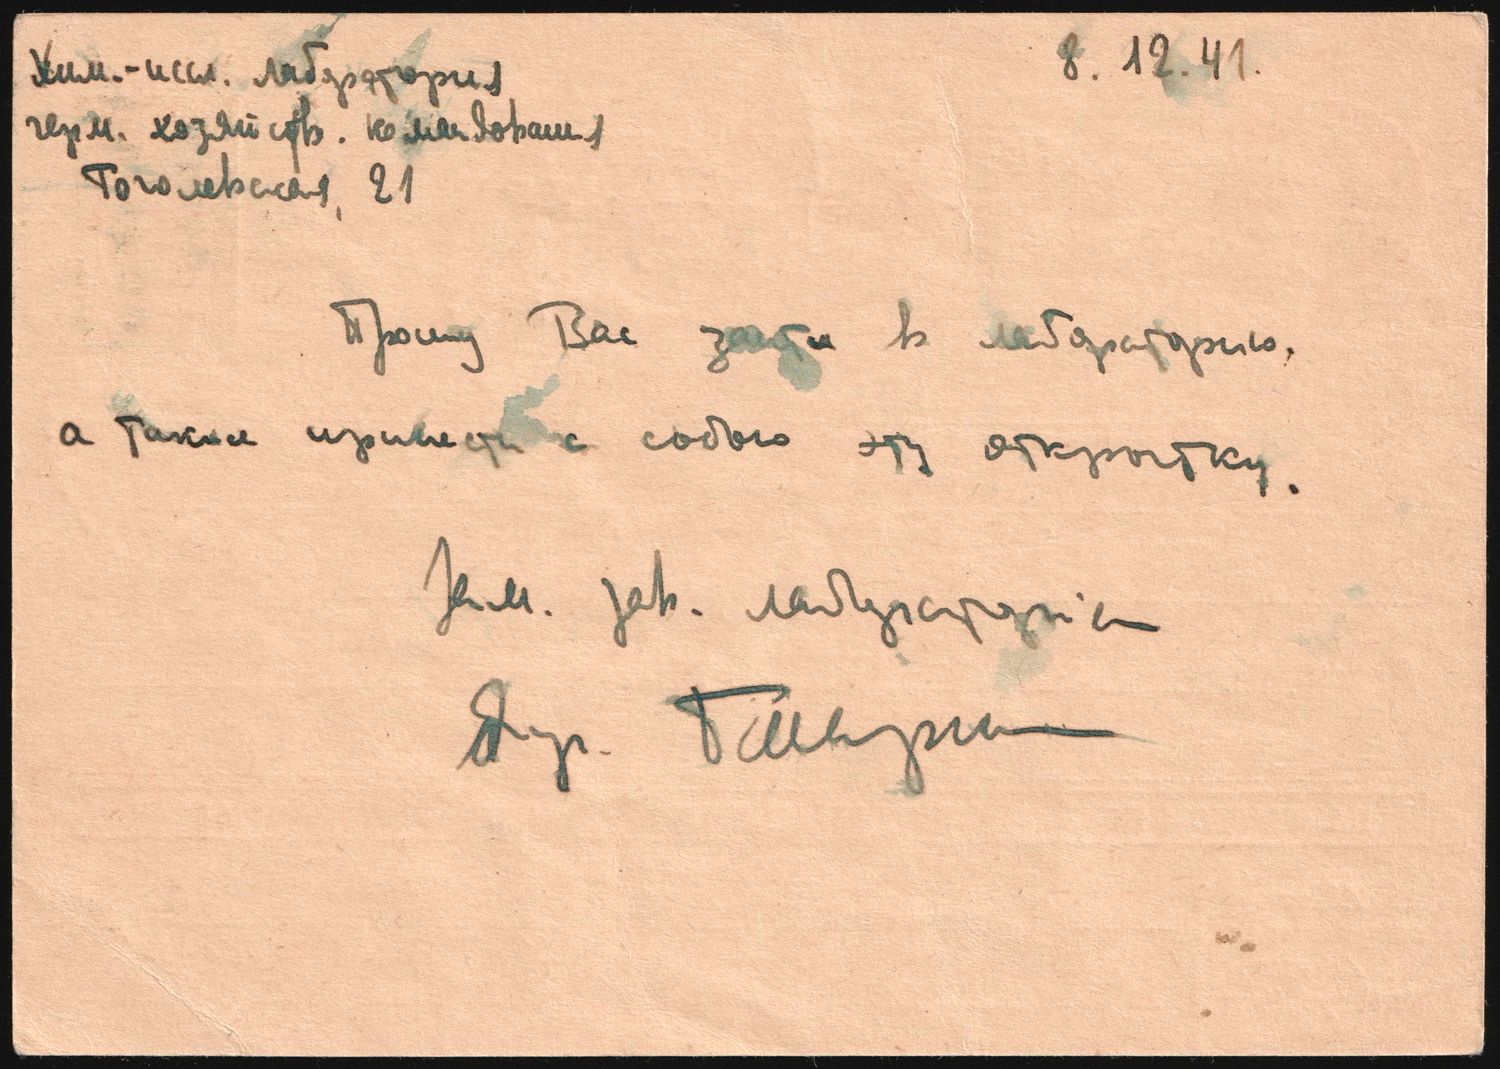 Хим.-иссл. лаборатория
герм. хозяйств. командования
Гоголевская, 21
8. 12. 41.
Прошу Вас зайти в лабораторию,
а также принести с собою эту открытку.
Зам. зав. лаборатории